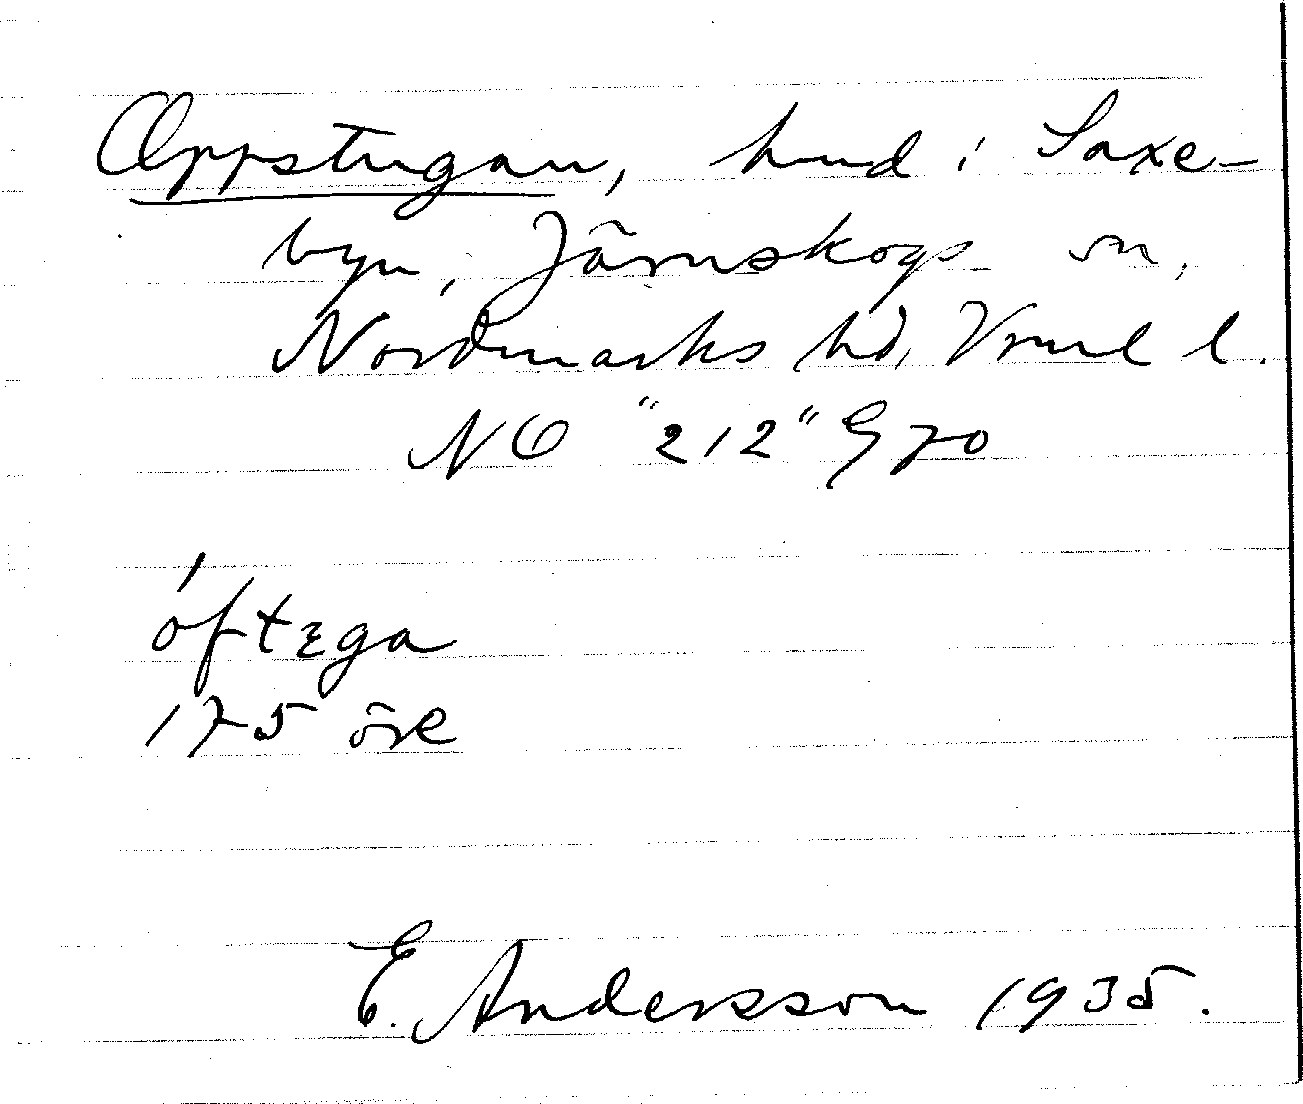 Oppstugan, hmd i Saxe-
byn, Järnskogs sn,
Nordmarks hd, Vrml l.
NO "212" G 70
óftɛga
175 öre
E. Andersson 1935.